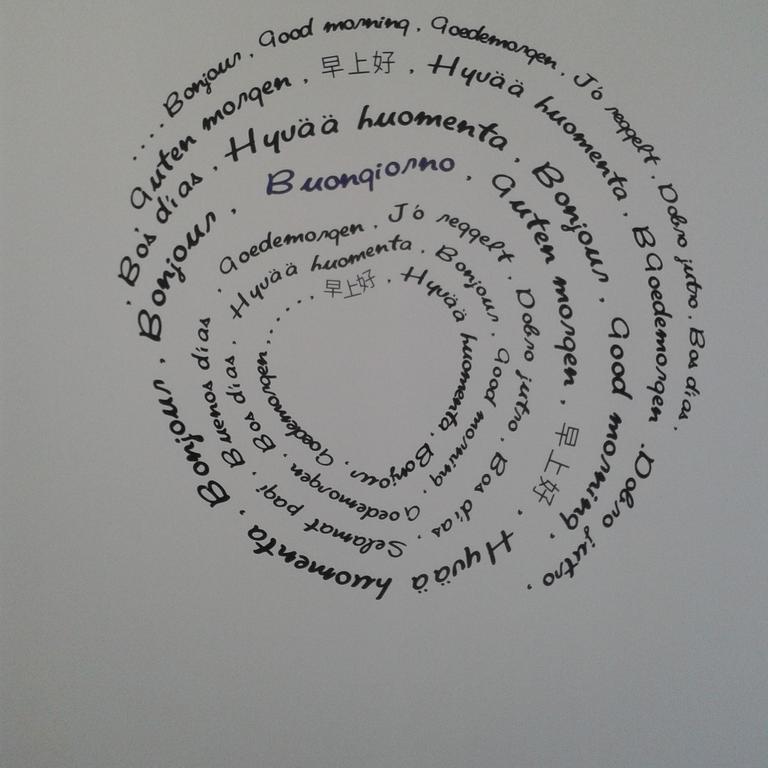 ....Bonjour. Good morning. Goedemorgen. Jó reggelt. Dobro jutro. Bos días.
Guten morgen. 早上好. Hyvää huomenta. BGoedemorgen. Dobro jutro.
. Bos días. Hyvää huomenta. Bonjour. Good morning.
Bonjour. Buongiorno. Guten morgen. 早上好. Hyvää huomenta. Bonjour.
. Goedemorgen. Jó reggelt. Dobro jutro. Bos días. Selamat pagi. Buenos días
Hyvää huomenta. Bonjour. Good morning. Goedemorgen. Bos días.
......早上好. Hyvää huomenta. Bonjour. Goedemorgen